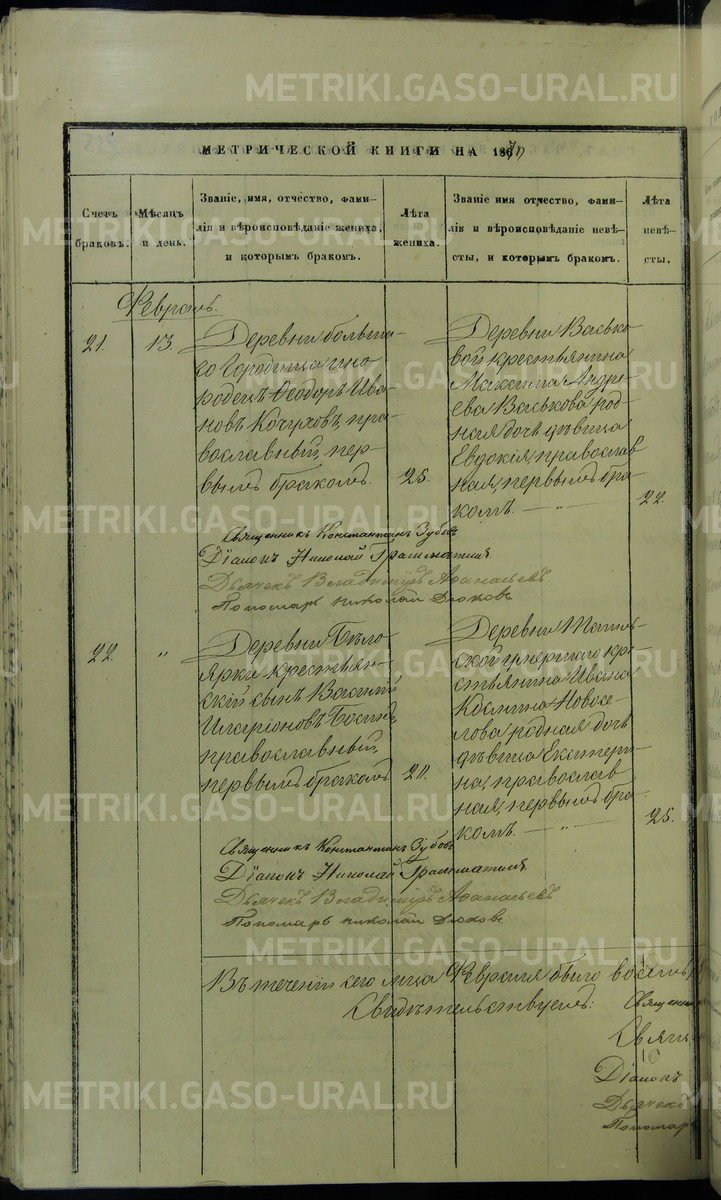 МЕТРИЧЕСКОЙ КНИГИ НА 1870
Счетъ браковъ.
Мѣсяцъ и день.
Званіе, имя, отчество, фами-
лія и вѣроисповѣданіе жениха,
и которымъ бракомъ.
Лѣта жениха.
Званіе имя отчество, фами-
лія и вѣроисповѣданіе невѣ-
сты, и которымъ бракомъ.
Лѣта невѣ-
сты.
Февраль.
21.
13
Деревни больша-
го Городища ино
родецъ Ѳеодоръ Ива-
новъ Кочуховъ, пра-
вославный, пер-
вымъ бракомъ.
25.
Деревни Васько-
вой крестьянина
Максима Андре-
ева Васькова род-
ная дочь дѣвица
Евдокія, православ
ная, первымъ бра-
комъ. — „ —
22.
Священникъ Константинъ Зубовъ
Діаконъ Николай Грамматинъ
Дьячекъ Владиміръ Аѳанасьевъ
Пономарь Николай Дюковъ
22.
„
Деревни Бѣло
ярки крестьян-
скій сынъ Василій
Иларіоновъ
православный,
первымъ бракомъ
Деревни
ской крестьянина Ивана
Козмина Новосе-
лова родная дочь
дѣвица Екатери-
на, православ
ная, первымъ бра-
комъ. — „ —
25.
Священникъ Константинъ Зубовъ
Діаконъ Николай Грамматинъ
Дьячекъ Владиміръ Аѳанасьевъ
Пономарь Николай Дюковъ
Въ теченіи сего мѣсяца Февраля было восемь
Свидѣтельствуемъ:
Священни
Діаконъ
Дьячекъ
Пономарь
METRIKI.GASO-URAL.RU